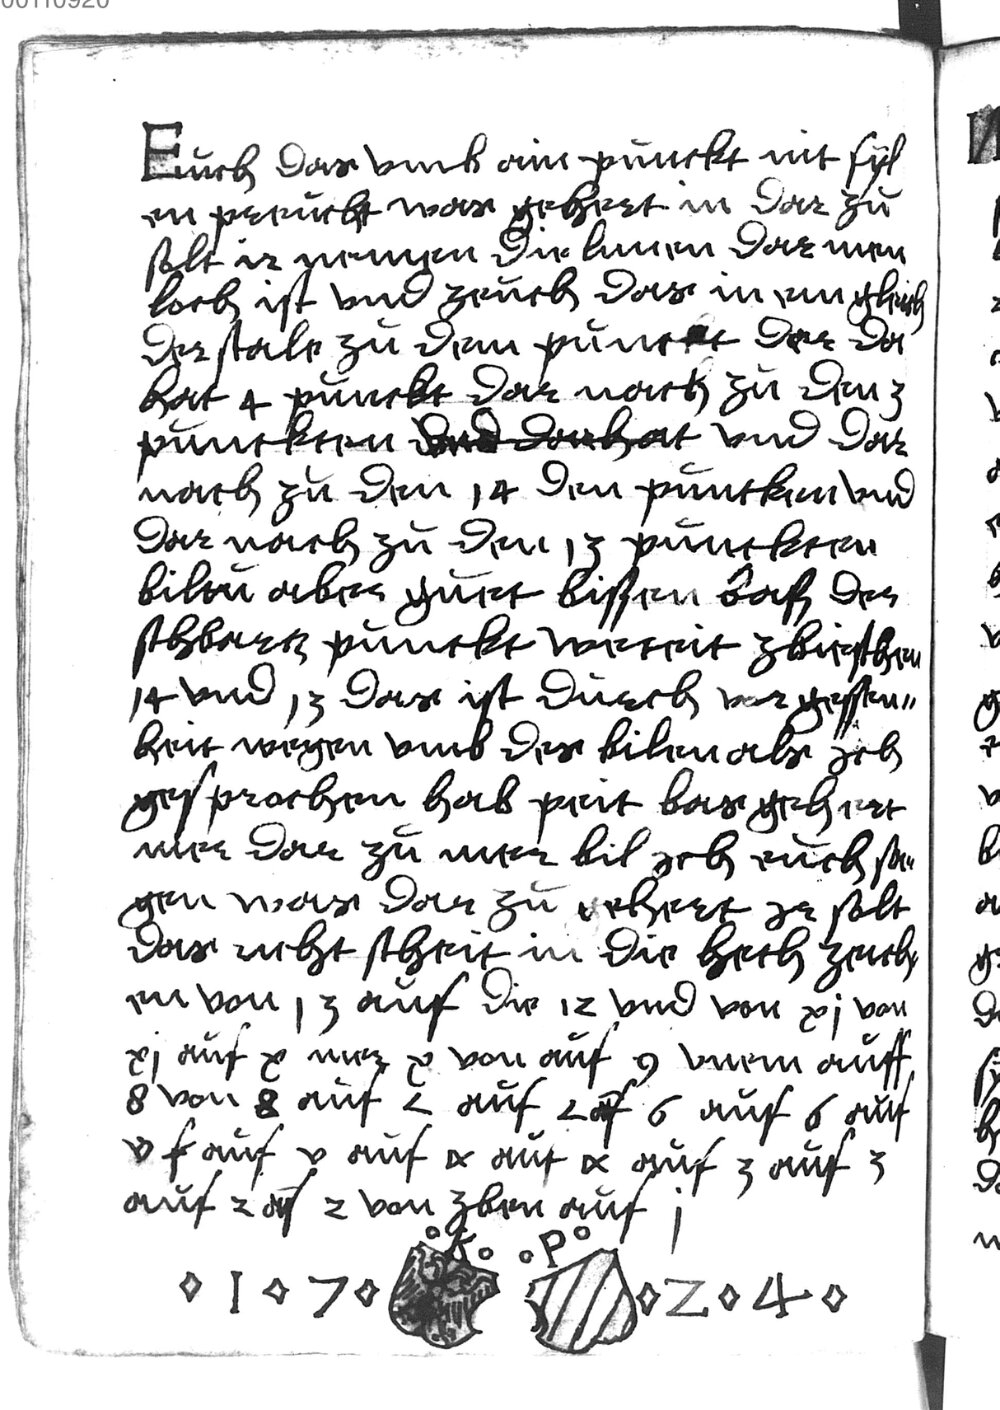 00110920
Euch das vmb ain punckt nit fyl
en prericht was gehert in dar zu
solt ir nemen die linien dar men
loch ist vnd zeuch das in ein gleich
der stale zu dem punckt der da
hat 4 punckt dar nach zu den 3
punckten vnd dar
nach zu den 14 den puncken vnd
dar nach zu den 13 punckten
biltu aber guet bissen das der
schbartz punckt bereit zbischen
14 vnd 13 das ist durch vergessen"
heit wegen vmb des bilen als ich
gesprochen hab peit bas gehert
mer dar zu mer bil ich euch sa"
gen was dar zu gehert ir solt
das recht scheit in die hech zeich
en von 13 auf die 12 vnd von xj von
xj auf x mer x von auf 9 vnem auff
8 von 8 auf 7 auf 7 auf 6 auf 6 auf
v f auf v auf 4 auf 4 auf 3 auf 3
auf 2 auf 2 von zben auf j
K P
1 7 2 4